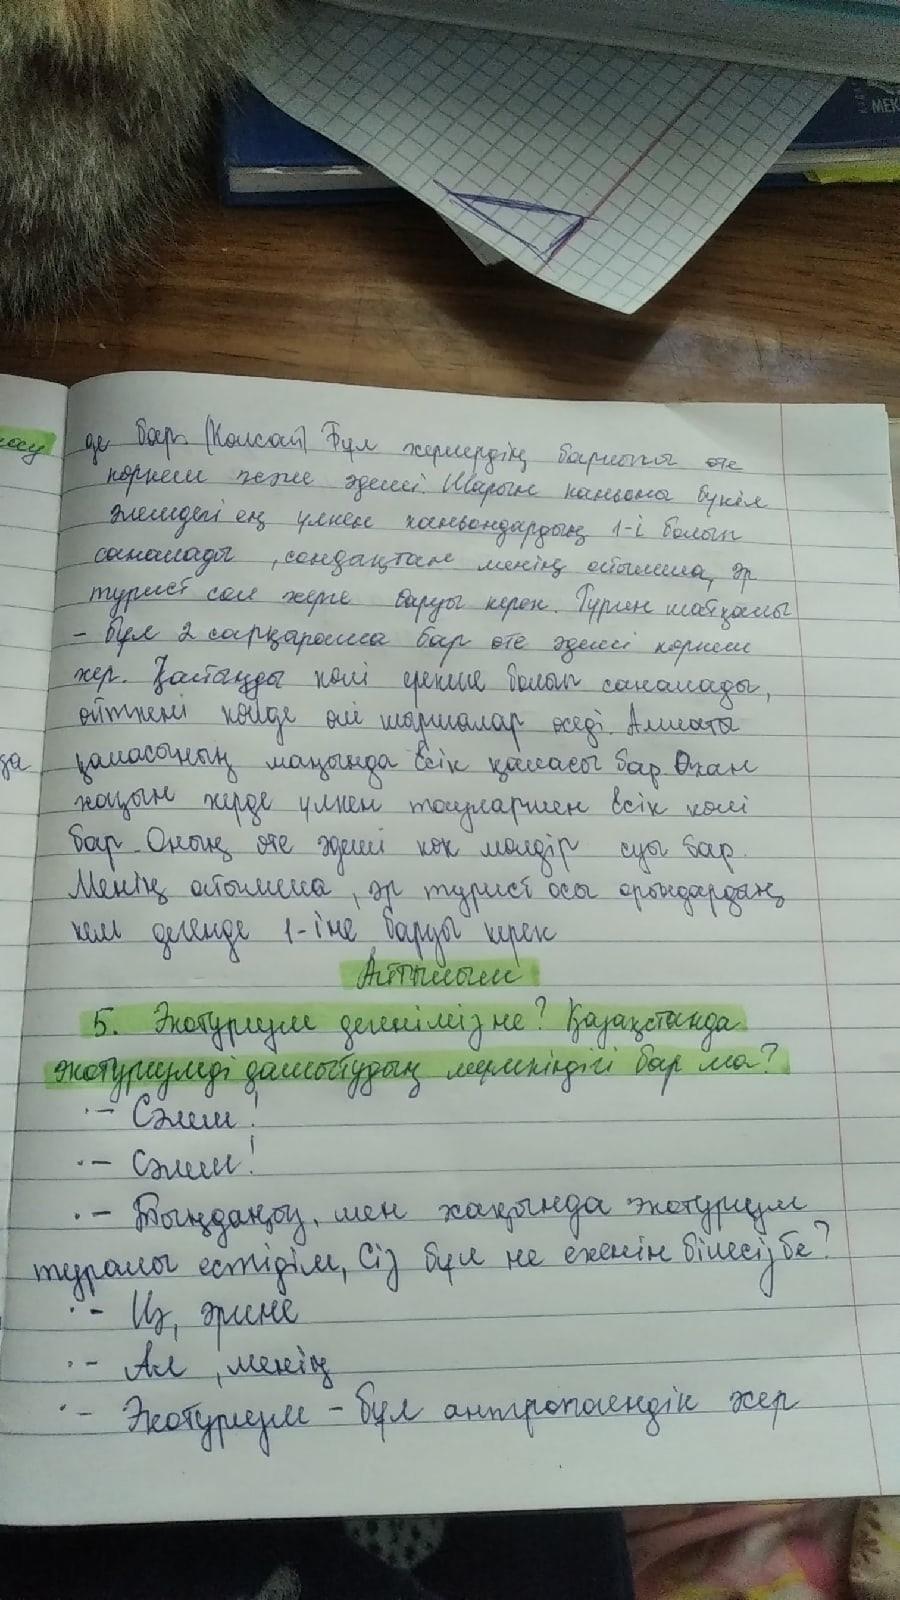 МЕК
де бар. (Колсай) Бұл жерлердің барлығы өте
көркем және әдемі. Шарын каньоны бүкіл
әлемдегі ең үлкен каньондардың 1-і болып
саналады, сондықтан менің ойымша, әр
турист сол жерге баруы керек. Түрген шатқалы
- бұл 2 сарқырама бар өте әдемі көркем
жер. Қайыңды көлі ерекше болып саналады,
өйткені көлде өлі шыршалар өседі. Алматы
қаласының маңында Есік қаласы бар. Оған
жақын жерде үлкен таулармен Есік көлі
бар. Оның өте әдемі көк мөлдір суы бар.
Менің ойымша, әр турист осы орындардың
кем дегенде 1-іне баруы керек
Айтылым
5. Экотуризм дегеніміз не? Қазақстанда
экотуризмді дамытудың мүмкіндігі бар ма?
- Сәлем!
- Сәлем!
- Тыңдаңыз, мен жақында экотуризм
туралы естідім, Сіз бұл не екенін білесіз бе?
- Иә, әрине
- Ал, менің
- Экотуризм - бұл антропогендік жер